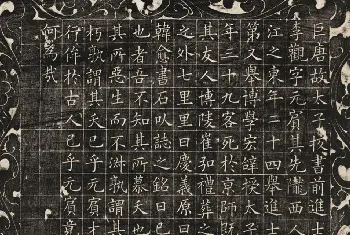 巨唐故太子校書前進士
李觀字元賓其先隴西人
江之東年二十四舉進士
第又舉博學宏辭授太子
年二十九客死於京師既
其友人博陵崔弘禮葬之
之外七里里曰慶義原曰
韓愈書石以誌之銘曰已
也者吾不知其所慕夭也
其所惡生而不淑孰謂其
朽孰謂其夭已乎元賓才
行侔於古人已乎元賓竟
何為哉